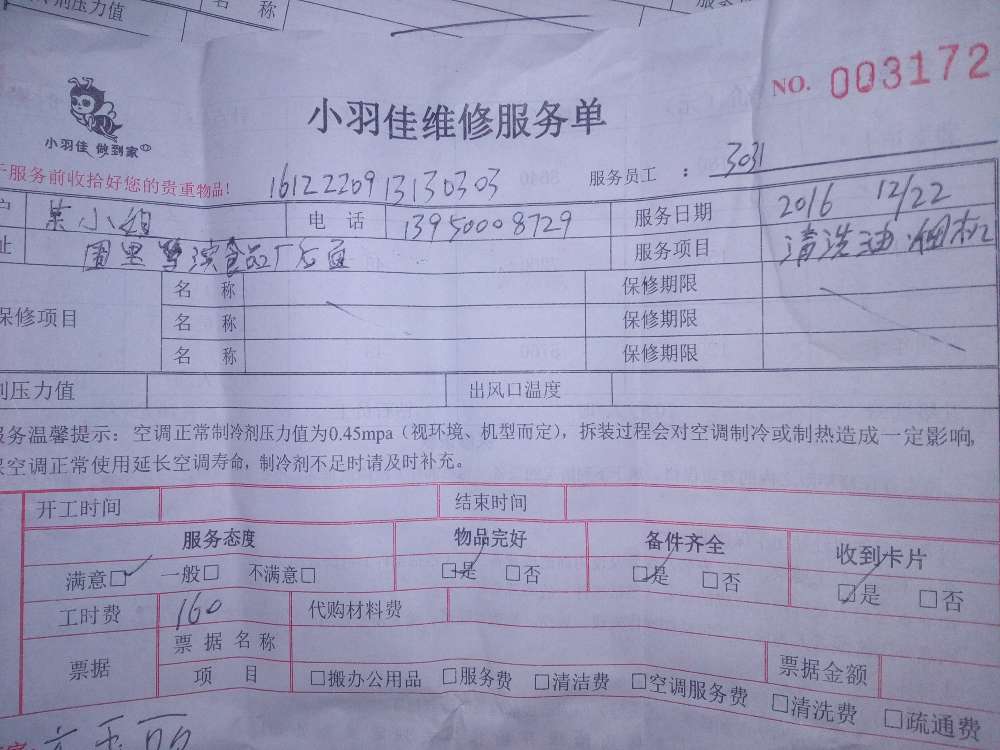 剂压力值 名 称
NO. 003172
小羽佳维修服务单
小羽佳 做到家
服务员工 : 3031
于服务前收拾好您的贵重物品! 16122209 13130303
户 小姐 电 话 13950008729 服务日期 2016 12/22
址 食品厂后面 服务项目 清洗油烟机
保修项目 名 称 保修期限
名 称 保修期限
名 称 保修期限
剂压力值 出风口温度
服务温馨提示: 空调正常制冷剂压力值为0.45mpa (视环境、机型而定), 拆装过程会对空调制冷或制热造成一定影响,
保空调正常使用延长空调寿命, 制冷剂不足时请及时补充。
开工时间 结束时间
服务态度 物品完好 备件齐全 收到卡片
满意□✓ 一般□ 不满意□ □是 □否 □是 □否 □是 □否
工时费 160 代购材料费
票据 票据名称 票据金额
项 目 □搬办公用品 □服务费 □清洁费 □空调服务费 □清洗费 □疏通费